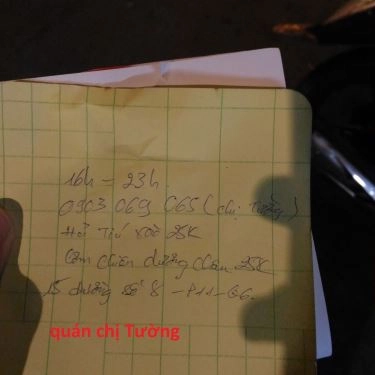 16h - 23h.
0903 069 065 (chị Tường)
Hủ Tiếu xào 25K
Cơm chiên dương châu 25K
15 đường số 8 - P11 - G6.
quán chị Tường